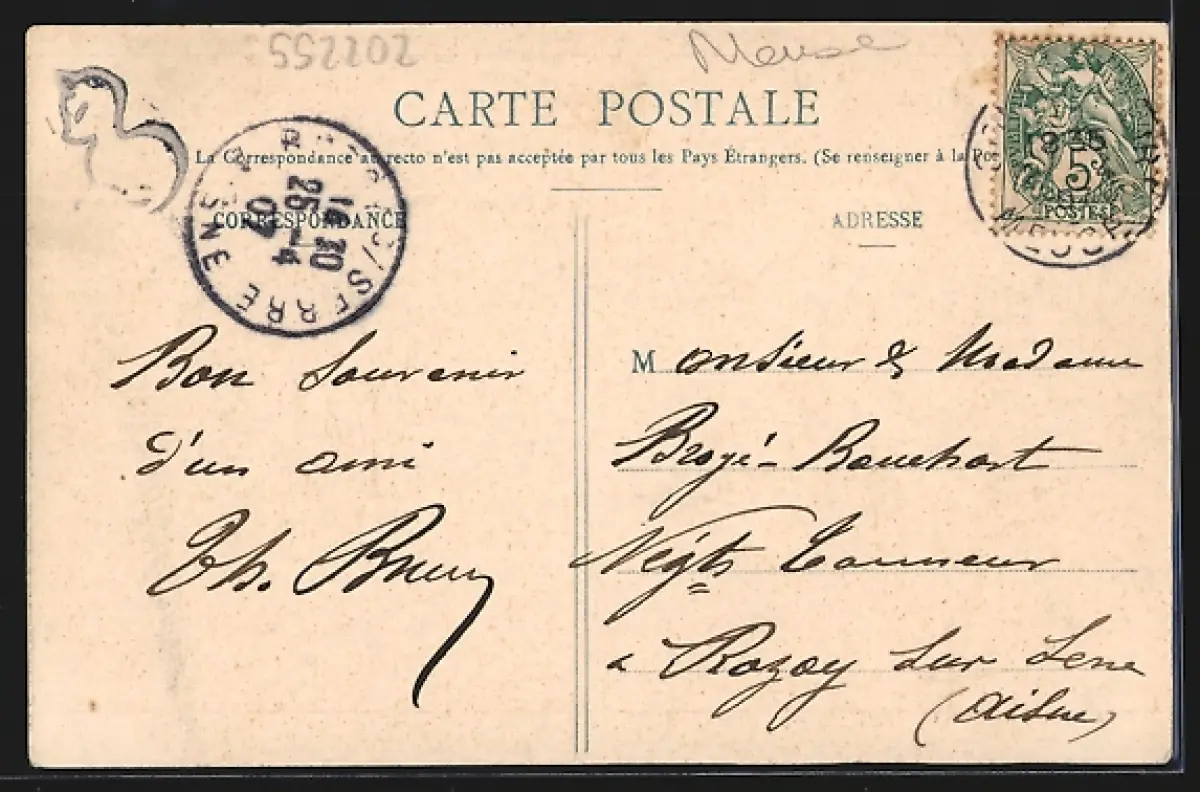 202255
Meuse
CARTE POSTALE
La Correspondance au recto n'est pas acceptée par tous les Pays Étrangers. (Se renseigner à la Pos
CORRESPONDANCE
ADRESSE
16 30
25 -4
07
S/SERRE
5c
POSTES
Bon Souvenir
d'un ami
Th.
Monsieur & Madame
Brogé-Bouchart
Négts Tanneur
a Rozoy sur Serre
(Aisne)